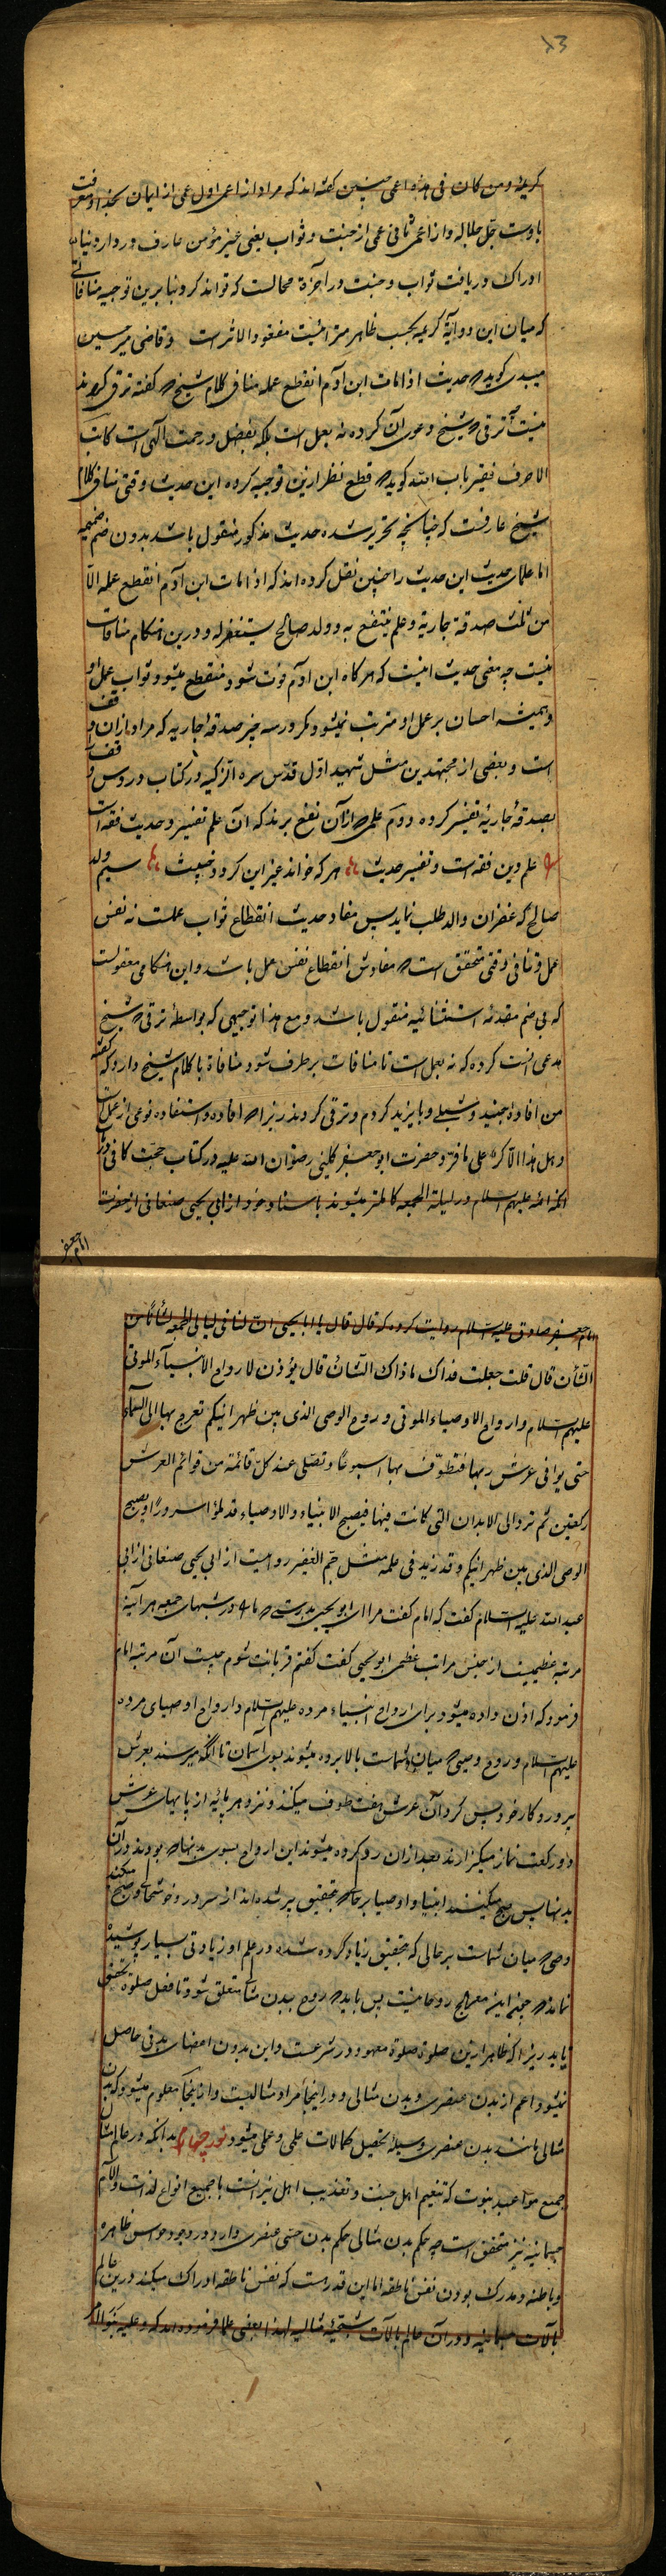 ۵۳
کریمهٔ و من کان فی هذه اعمی چنین گفته‌اند که مراد از اعمی اول عمی از ایمان بخدا و معرفت
باوست جل جلاله و از اعمی ثانی عمی از جنت و ثواب یعنی غیر مؤمن عارف در دار دنیا
ادراک و ریافت ثواب و جنت در آخرة محالست که تواند کرد و بنابرین توجیه منافاتی
که میان این دو آیهٔ کریمه بحسب ظاهر مترائیست مفقود الاثر است و قاضی میر حسین
میبدی گوید که حدیث اذا مات ابن آدم انقطع عمله منافی کلام شیخ که گفته ترقی کردند
نیست آن ترقی که شیخ دعوی آن کرده نه بعمل است بلکه بفضل و رحمت الهی است کاتب
الاحرف فقیر باب الله گوید که قطع نظر ازین توجیه کرده این حدیث وقتی منافی کلام
شیخ عارفست که چنانچه تحریر شده حدیث مذکور منقول باشد بدون ضم ضمیمه
اما علمای حدیث این حدیث را چنین نقل کرده‌اند که اذا مات ابن آدم انقطع عمله الا
من ثلث صدقة جاریة و علم ینتفع به و ولد صالح یستغفر له و درین هنگام منافات
نیست چه معنی حدیث اینست که هرگاه ابن آدم فوت شود منقطع میشود ثواب عمل او
و همیشه احسان بر عمل او مترتب نمیشود مگر در سه چیز صدقهٔ جاریه که مراد از آن وقف
است و بعضی از مجتهدین مثل شهید اول قدس سره الزکیه در کتاب دروس وقف را
بصدقهٔ جاریه تفسیر کرده دوم علمی که از آن نفع برند که آن علم تفسیر و حدیث فقه است
علم دین فقه است و تفسیر حدیث هر که خواند غیر این گردد خبیث سیم ولد
صالح که غفران والد طلب نماید پس مفاد حدیث انقطاع ثواب عملست نه نفس
عمل و تنافی وقتی متحقق است که مفادش انقطاع نفس عمل باشد و این هنگامی معقولست
که بی ضم مقدمه استثنائیه منقول باشد و مع هذا توجیهی که بواسطهٔ ترقی که شیخ
مدعی آنست کرده که نه بعمل است تا منافات برطرف شود منافاة با کلام شیخ دارد که گفته
من افادهٔ جنید و شبلی و بایزید کردم و ترقی کردند زیرا که افاده و استفاده نوعی از عمل است
و هل هذا الا کر علی ما فر و حضرت ابو جعفر کلینی رضوان الله علیه در کتاب حجت کافی در
آنکه ائمه علیهم السلام در لیلة الجمعه کاملتر میشوند باسناد خود از ابی یحیی صنعانی از حضرت
امام جعفر
امام جعفر صادق علیه السلام روایت کرده که قال قال یا ابا یحیی ان لنا فی لیالی الجمعه لشأنا من
الشأن قال قلت جعلت فداک ما ذاک الشأن قال یؤذن لارواح الانبیاء الموتی
علیهم السلام و ارواح الاوصیاء الموتی و روح الوصی الذی بین ظهرانیکم تعرج بها الی السماء
حتی یوافی عرش ربها فتطوف بها اسبوعا و تصلی عند کل قائمة من قوائم العرش
رکعتین ثم ترد الی الابدان التی کانت فیها فیصبح الانبیاء و الاوصیاء قد ملؤا سرورا و یصبح
الوصی الذی بین ظهرانیکم و قد زید فی علمه مثل جم الغفیر روایت از ابی یحیی صنعانی از ابی
عبد الله علیه السلام گفت که امام گفت مرا ای ابو یحیی بدرستی که ما را در شبهای جمعه هر آینه
مرتبه عظیمیست از جنس مراتب عظمی ابو یحیی گفت گفتم قربانت شوم چیست آن مرتبه امام
فرمود که اذن داده میشود برای ارواح انبیاء مرده علیهم السلام و ارواح اوصیای مرده
علیهم السلام و روح وصیی که میان شماست بالا برده میشوند بسوی آسمان تا آنکه میرسند بعرش
پروردگار خود پس گرد آن عرش هفت طوف میکنند و نزد هر پایه از پایهای عرش
دو رکعت نماز میگزارند بعد از آن رد کرده میشوند این ارواح بسوی بدنها که بودند در آن
بدنها پس صبح میکنند انبیا و اوصیا بر حالی که بتحقیق پر شده‌اند از سرور و خوشحالی و صبح میکند
وصی که میان شماست بر حالی که بتحقیق زیاد کرده شده در علم او زیادتی بسیار پوشیده
نماند که چون این معراج روحانیست پس باید که روح ببدن مثالی متعلق شود تا فعل صلوة تحقق
یابد زیرا که ظاهر ازین صلوة صلوة معهود در شرعست و این بدون اعضای بدنی حاصل
نیشود اعم از بدن عنصری و بدن مثالی و در اینجا مراد مثالیست و از اینجا معلوم میشود که بدن
مثالی مانند بدن عنصری وسیلهٔ تحصیل کمالات علمی و عملی میشود نور چهارم بدانکه در عالم مثال
جمیع مواعید نبوت که تنعیم اهل جنت و تعذیب اهل نیرانست با جمیع انواع لذات و آلام
جسمانیه نیز متحقق است چه حکم بدن مثالی حکم بدن حسی عنصری دارد در وجود حواس ظاهره
و باطنه و مدرک بودن نفس ناطقه اما این قدر هست که نفس ناطقه ادراک میکند درین عالم
بآلات جسمانیه و در آن عالم بآلات شبحیهٔ مثالیه لهذا بعضی علما فرموده‌اند که و علیه بنوا امر